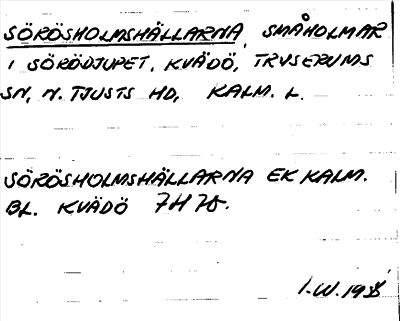 SÖRÖSHOLMSHÄLLARNA, SMÅHOLMAR
I SÖRÖDJUPET, KVÄDÖ, TRYSERUMS
SN, N. TJUSTS HD, KALM. L.
SÖRÖSHOLMSHÄLLARNA EK KALM.
BL. KVÄDÖ 7H 7b.
I.W. 19